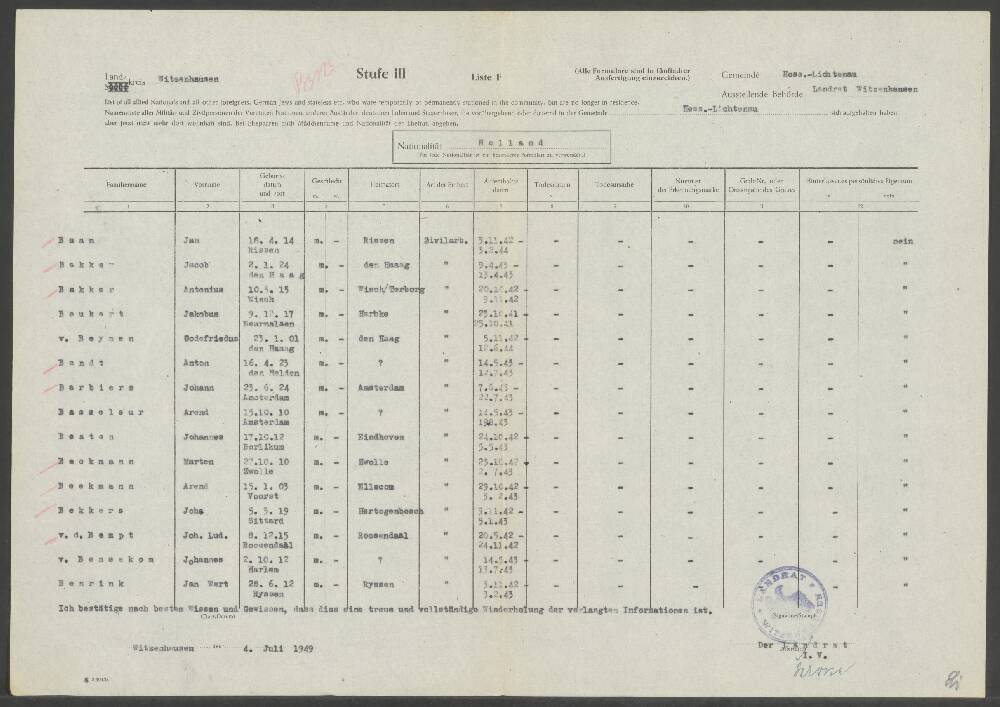 Land-
kreis Witzenhausen
Stufe III
Liste F
(Alle Formulare sind in fünffacher
Ausfertigung einzureichen.)
Gemeinde Hess.-Lichtenau
Ausstellende Behörde Landrat Witzenhausen
List of all allied Nationals and all other foreigners, German Jews and stateless etc. who were temporarily or permanently stationed in the community, but are no longer in residence.
Namensliste aller Militär- und Zivilpersonen der Vereinten Nationen, anderer Ausländer, deutscher Juden und Staatenloser, die vorübergehend oder dauernd in der Gemeinde Hess.-Lichtenau sich aufgehalten haben,
aber jetzt nicht mehr dort wohnhaft sind. Bei Ehepaaren auch Mädchenname und Nationalität der Ehefrau angeben.
Nationalität Holland
(für jede Nationalität ist ein besonderes Formular zu verwenden.)
Familienname Vorname Geburtsdatum und -ort Geschlecht m. w. Heimatort Art der Einheit Aufenthaltsdaten Todesdatum Todesursache Nummer der Erkennungsmarke Grab-Nr. oder Hinterlassenes persönliches Eigentum ja nein
1 2 3 4 5 6 7 8 9 10 11 12
Baan Jan 16. 4. 14 m. - Rissen Zivilarb. 3.11.42 - - - - - - nein
Rissen 3.2.44
Bakker Jacob 2. 1. 24 m. - den Haag " 9.4.43 - - - - - - "
den Haag 13.4.43
Bakker Antonius 10.5. 15 m. - Wisch/Terborg " 20.10.42 - - - - - - "
Wisch 9.11.42
Baukart Jakobus 9. 12. 17 m. - Harbke " 23.10.41 - - - - - - "
Beurmalsen 25.10.41
v. Beynen Godefriedus 23. 1. 01 m. - den Haag " 5.11.42 - - - - - - "
den Haag 12.6.44
Bandt Anton 16. 4. 23 m. - ? " 14.5.43 - - - - - - "
den Helden 12.7.43
Barbiers Johann 23. 6. 24 m. - Amsterdam " 7.6.43 - - - - - - "
Amsterdam 22.7.43
Basseleur Arend 15.10. 10 m. - ? " 14.5.43 - - - - - - "
Amsterdam 198.43
Beaten Johannes 17.10.12 m. - Eindhoven " 24.10.42 - - - - - - "
Berlikum 5.5.43
Beckmann Marten 27.10. 10 m. - Zwolle " 23.10.42 - - - - - - "
Zwolle 2. 7.43
Beekmann Arend 15. 1. 03 m. - Ellecom " 29.10.42 - - - - - - "
Voorst 5. 2.43
Bekkers Johs 5. 5. 19 m. - Hertogenbosch " 3.11.42 - - - - - - "
Sittard 5.1.43
v. d. Bempt Joh. Lud. 8. 12.15 m. - Roosendaal " 20.5.42 - - - - - - "
Roosendaal 24.11.42
v. Beneekom Johannes 2. 10. 12 m. - ? " 14.5.43 - - - - - - "
Harlem 13.7.43
Benrink Jan Wert 28. 6. 12 m. - Ryssen " 3.11.42 - - - - - - "
Ryssen 3.2.43
Ich bestätige nach bestem Wissen und Gewissen, dass dies eine treue und vollständige Wiederholung der verlangten Informationen ist.
LANDRAT
Witzenhausen den 4. Juli 1949
Der Landrat
I. V.